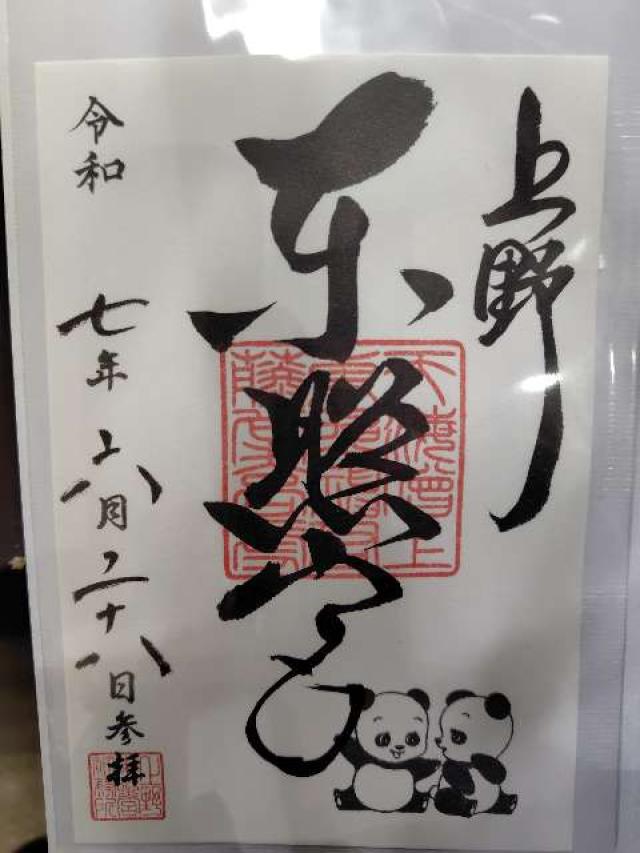 上野
東照宮
令和七年六月二十八日参拝